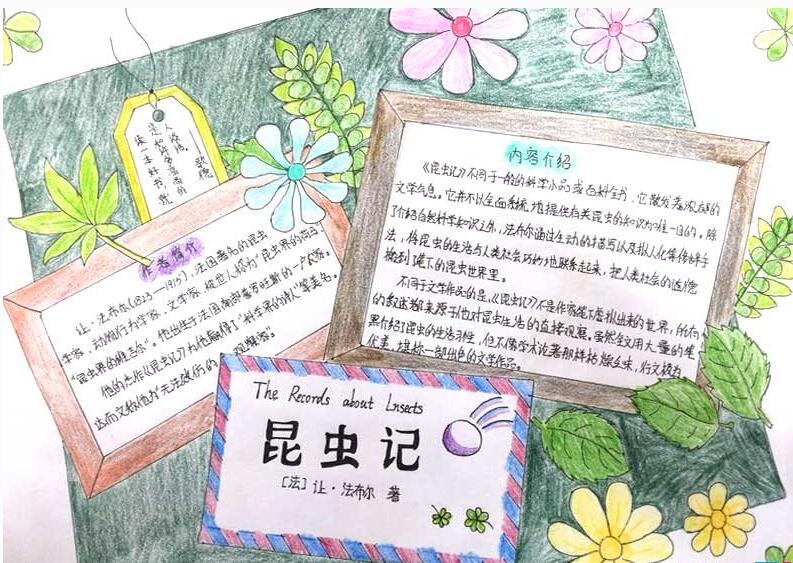 读一本好书,就
是和许多高尚的
人谈话。
——歌德
作者简介
让·法布尔(1823—1915),法国著名的昆虫
学家,动物行为学家,文学家,被世人称为“昆虫界的荷马
“昆虫界的维吉尔”。他出生于法国南部普罗旺斯的一户农家。
他的杰作《昆虫记》为他赢得了“科学界的诗人”等美名。
达尔文称他为“无法效仿的观察家”
内容介绍
《昆虫记》不同于一般的科学小品或百科全书,它散发着浓郁的
文学气息。它并不以全面系统地提供有关昆虫的知识为唯一目的。除
了介绍自然科学知识之外,法布尔通过生动的描写以及拟人化等修辞手
法,将昆虫的生活与人类社会巧妙地联系起来,把人类社会的道德
搬到笔下的昆虫世界里。
不同于文学作品的是,《昆虫记》不是作家笔下虚拟出来的世界,所有
的叙述都来源于他对昆虫生活的直接观察。虽然全文用大量的笔
墨介绍了昆虫的生活习性,但不像学术论著那样枯燥乏味,行文极为
优美,堪称一部出色的文学作品。
The Records about Insects
昆虫记
[法]让·法布尔 著